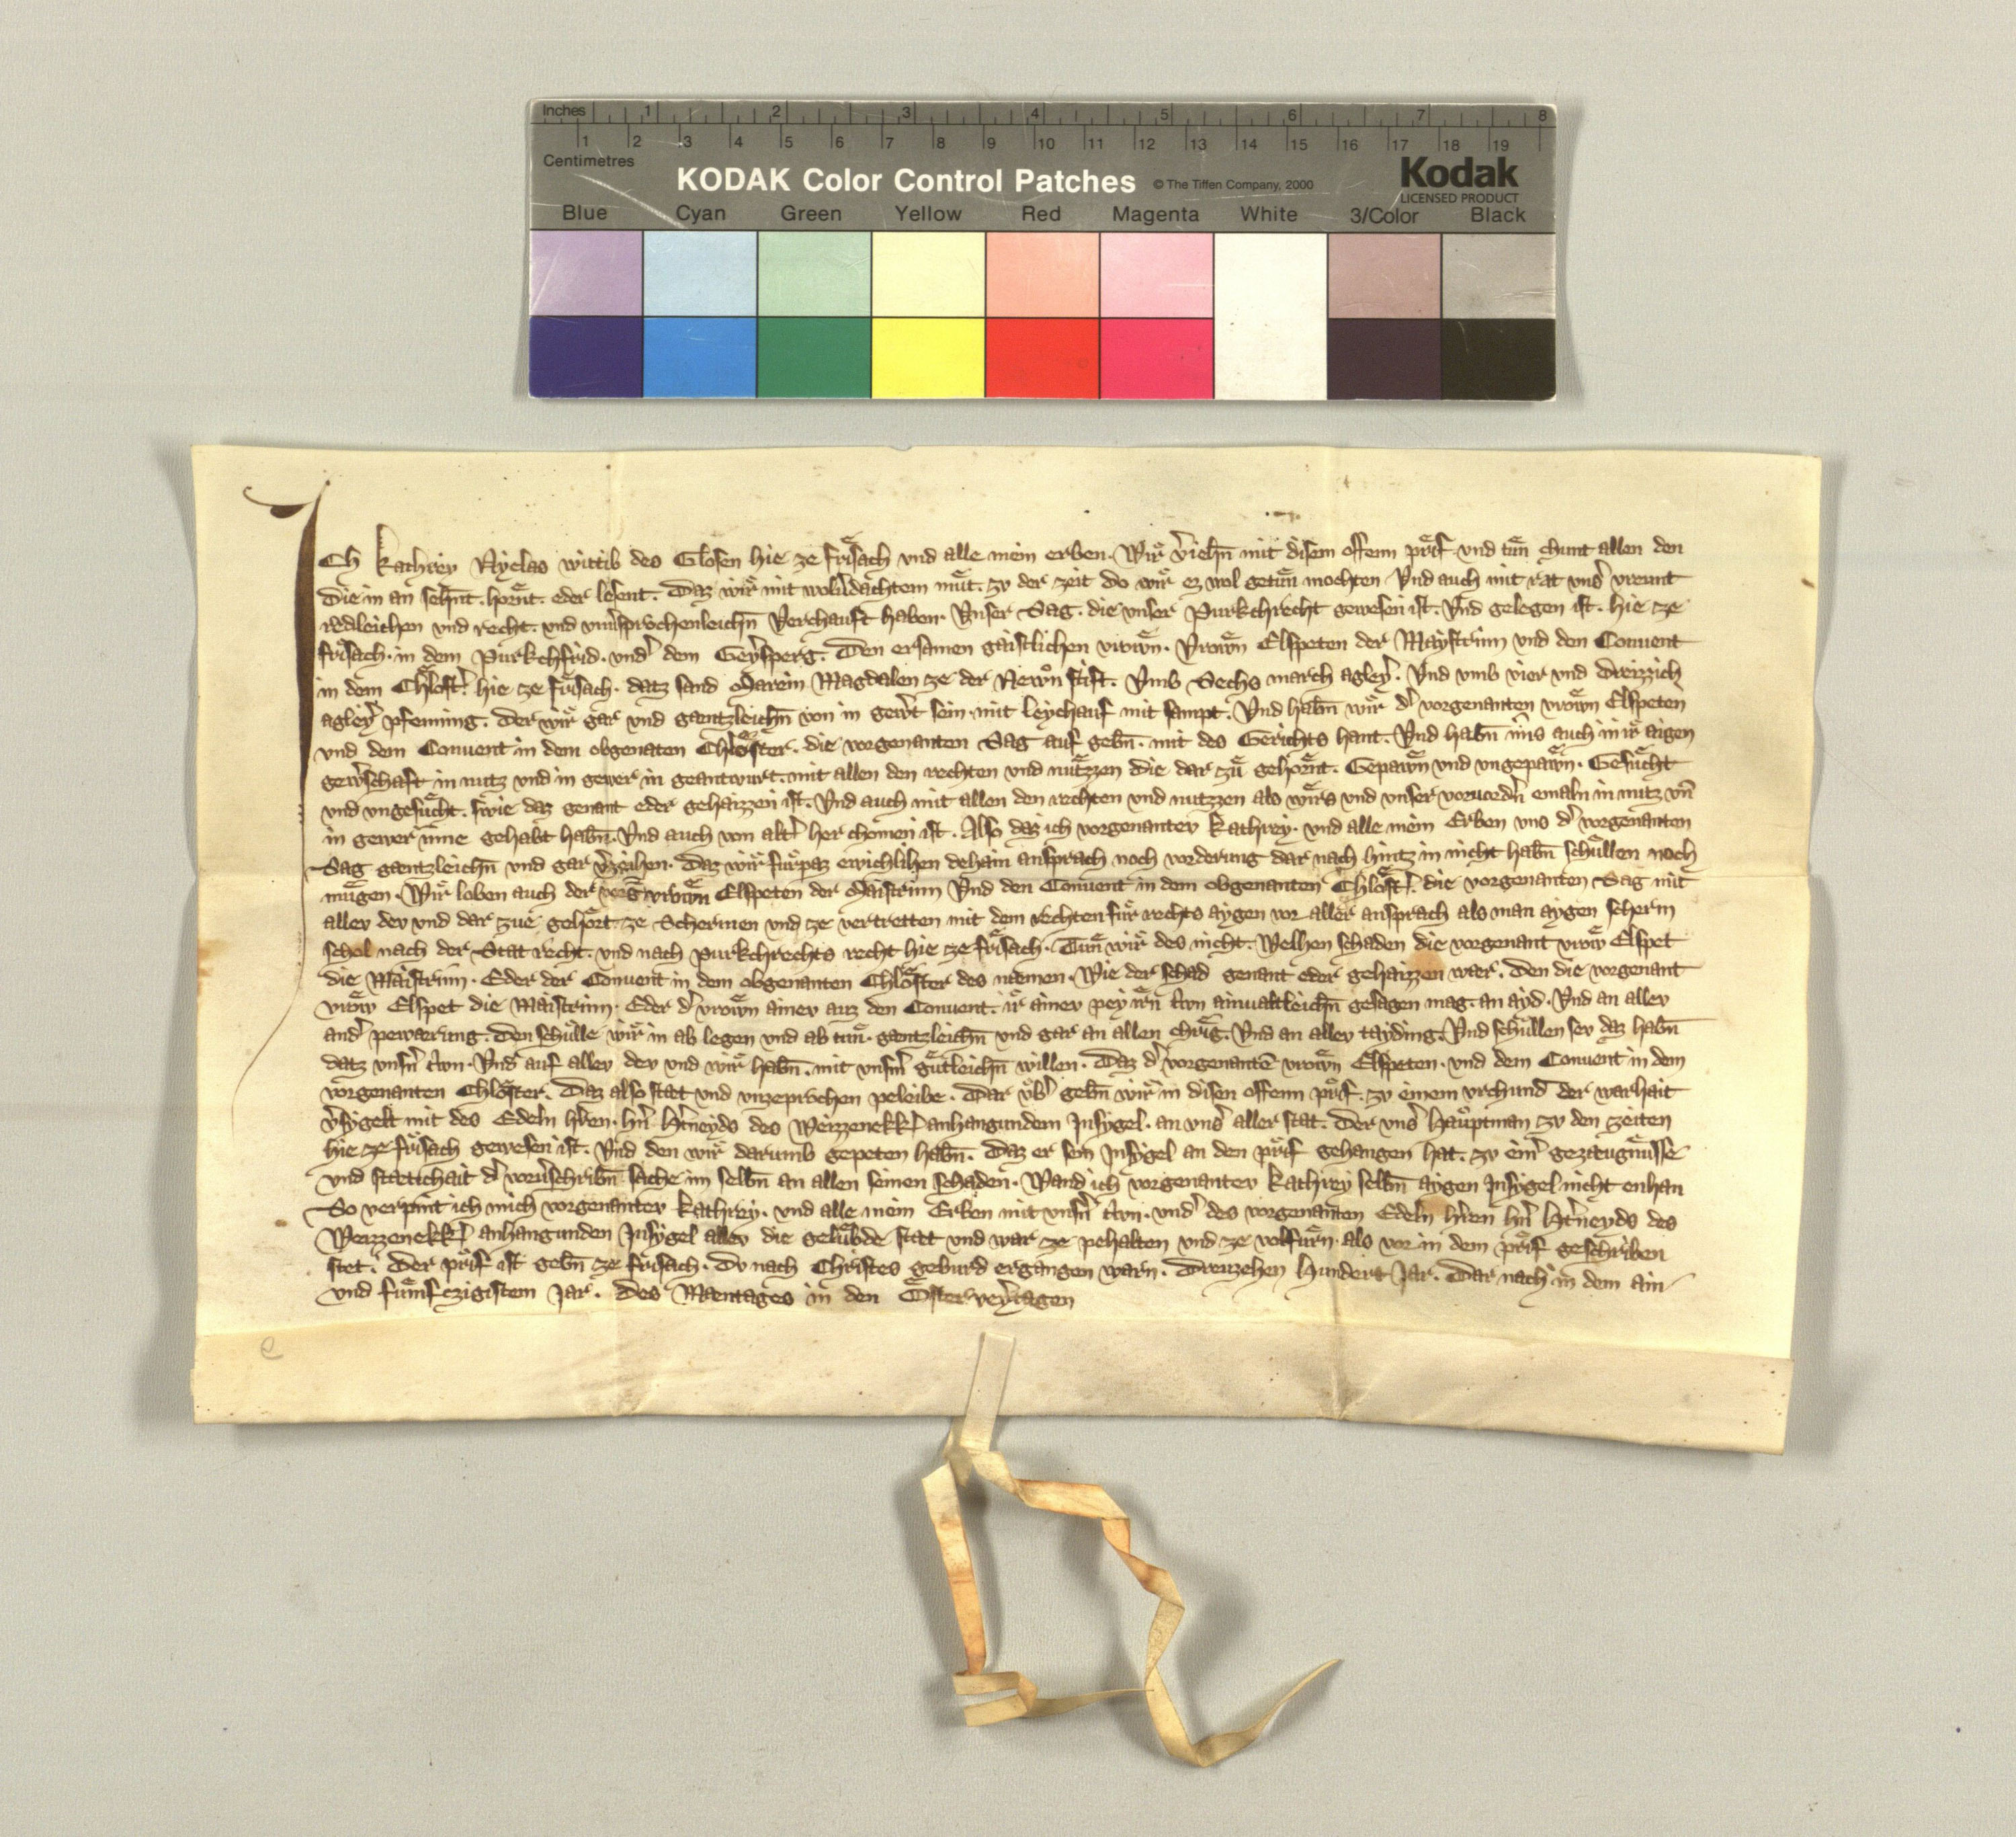 Inches 1 2 3 4 5 6 7 8
1 2 3 4 5 6 7 8 9 10 11 12 13 14 15 16 17 18 19
Centimetres
KODAK Color Control Patches © The Tiffen Company, 2000 Kodak
LICENSED PRODUCT
Blue Cyan Green Yellow Red Magenta White 3/Color Black
Ich Kathrey Nyclas wittib des Glosen hie ze frisach vnd alle mein erben. Wir v̾iehn̄ mit disem offenn prif vnd tun chunt allen den
die in an sehnt. hornt. eder lesent. Daz wir mit wolbdachtem mut. zv der zeit do wir ez wol getun mochten Vnd auch mit rat vns̾ vreunt
redleichen vnd recht. vnd vnu̾sprochenleichn̄ Verchauft haben. Vnser Sag. die vnser Purkchrecht gewesen ist. Vnd gelegen ist. hie ze
frisach. in dem Purkchfrid. vnd̾ dem Geysperg. Den ersamen gaistlichen vrown. Vrown Elspeten der Maystrinn vnd den Conuent
in dem Chlost̾. hie ze frisach. datz sand Marein Magdalen ze der Newn stift. Vmb Sechs march agley̾. Vnd vmb vier vnd dreizzich
agley̾ pfenning. der wir gar vnd gantzleichn̄ von in gewert sein. mit leychauf mit sampt. Vnd habn̄ wir d̾ vorgenanten vrown Elspeten
vnd dem Conuent in dem obgenaten Chloster. die vorgenanten Sag auf gebn̄. mit des Gerichts hant. Vnd habn̄ auch in ir aigen
gew̾schaft in nutz vnd in gewer in geantwurt. mit allen den rechten vnd nutzzen die dar zu gehornt. Gepawn vnd vngepawn. Gesucht
vnd vngesucht. swie daz genant eder gehaizzen ist. Vnd auch mit allen den rechten vnd nutzzen als wirs vnd vnser voruodn̄ emaln in nutz vn̄
in gewer inne gehabt habn̄. Vnd auch von alt̾ her chomen ist. Also daz ich vorgenantev Kathrey. vnd alle mein Erben vns d̾ vorgenanten
Sag gantzleichn̄ vnd gar v̾zeihen. Daz wir furpaz ewichlihen dehain ansprach noch vorderung dar nach hintz in nicht habn̄ schullen noch
mugen. Wir loben auch der vorg vrown Elspeten der Maistrinn Vnd den Conuent in dem obgenanten Chlost̾. die vorgenanten Sag mit
allev dev vnd dar zue gehort ze Schermen vnd ze vertretten mit dem rechten fur rechts aygen vor aller ansprach als man aygen scherm
schol nach der Stat recht. vnd nach purkchrechts recht hie ze frisach. Tun wir des nicht. Welhen schaden die vorgenant vrow Elspet
die Maistrinn. Eder der Conuent in dem obgenanten Chloster des nemen. Wie der schad genant eder gehaizzen war. den die vorgenant
vrow Elspet die Maistrinn. Eder d̾ vrown ainev auz den Conuent. ir ainev pey irn trwn ainualtleichn̄ gesagen mag. an ayd. Vnd an allev
and̾ pewaerung. den schulle wir in ab legen vnd ab tun. gantzleichn̄ vnd gar an allen chrig. Vnd an allev tayding. Vnd schullen sev daz habn̄
datz vnsn̾ trwn. Vnd auf allev dev vnd wir habn̄. mit vnsm̾ gutleichn̄ willen. Daz d̾ vorgenantē vrown Elspeten. vnd dem Conuent in dem
vorgenanten Chloster. Daz also stat vnd vnzeprochen peleibe. Dar vb̾ gebn̄ wir in disen offenn prif. zv einem vrchund der warhait
v̾sygelt mit des Edeln hr̾en. hn̾ Ht̾neyds des Weizzenekk̾ anhangundem Insygel. an vns̾ aller stat. der vns̾ Hauptman zv den zeiten
hie ze frisach gewesen ist. Vnd den wir darumb gepeten habn̄. Daz er sein Insygel an den prif gehangen hat. zv ein̾ gezeugnusse
vnd statichait d̾ voru̾schribn̄ sache im selbn̄ an allen seinen schaden. Wand ich vorgenantev Kathrey selbn̄ aygen Insygel nicht enhan
So verpint ich mich vorgenantev Kathrey. vnd alle mein Erben mit vnsn̾ trwn. vnd̾ des vorgenanten Edeln hr̾en hn̾ Ht̾neyds des
Weizzenekk̾ anhangunden Insygel allev die gelubde stat vnd war ze pehalten vnd ze volfurn. als vor in dem prif geschriben
stet. Der prif ist gebn̄ ze frisach. Do nach Christes geburd ergangen warn. Dreuzehen Hundert Jar. Dar nach in dem ain
vnd funfczigistem Jar. des Maentages in den Oster veyrtagen
e